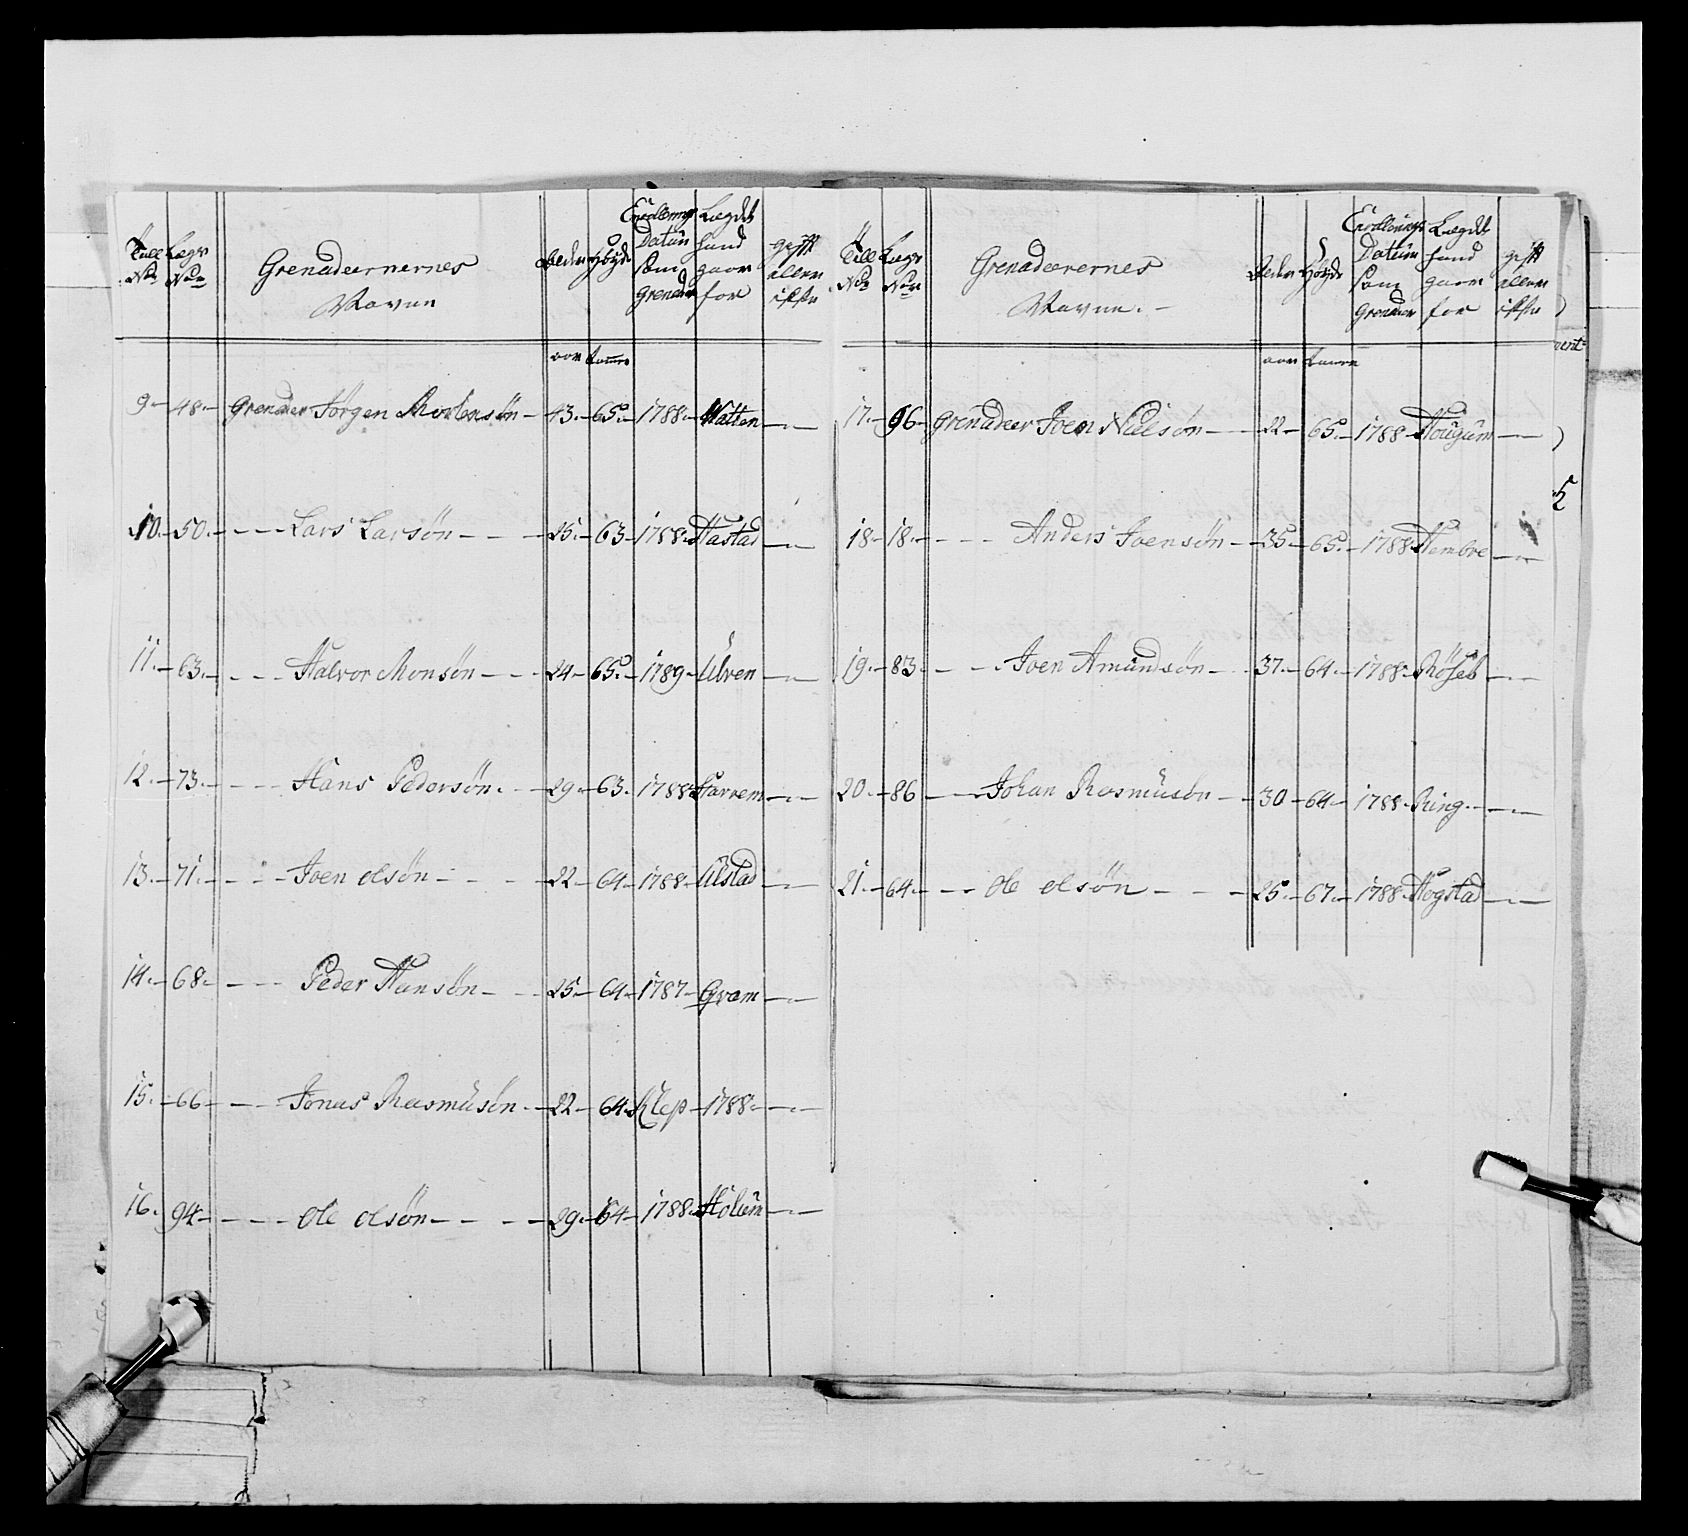 Tall No Lægs No Grenadeernernes Navne Alder Høyde Enrollerings Datum som Grenader Lægdet hand gaar for gift eller ikke
aar tomme
9 - 48 - Grenadeer Jörgen Mortensön - 43 - 65 - 1788 - Watten
10 - 50 - Lars Larsön - 25 - 63 - 1788 - Hastad
11 - 63 - Halvor Monsön - 24 - 65 - 1789 - Ulven
12 - 73 - Hans Pedersön - 29 - 63 - 1788 - Harrem
13 - 71 - Joen olsön - 22 - 64 - 1788 - Ulstad
14 - 68 - Peder Hansön - 25 - 64 - 1787 - Gram
15 - 66 - Jonas Rasmusön - 22 - 64 - Klep - 1788
16 - 94 - ole olsön - 29 - 64 - 1788 - Holum
Tall No Lægs No Grenadeerernes Navne. Alder Höyde Enrollerings Datum som Grenadeer Lægdet hand gaar for gift eller ikke
aar tomme
17 - 96 - Grenadeer Joen Nielsön - 22 - 65 - 1788 - Hougum
18 - 18 - Anders Joensön - 35 - 65 - 1788 - Hembre
19 - 83 - Joen Amundsön - 37 - 64 - 1788
20 - 86 - Johan Rasmusön - 30 - 64 - 1788 - Ring
21 - 64 - ole olsön - 25 - 67 - 1788 - Hogstad